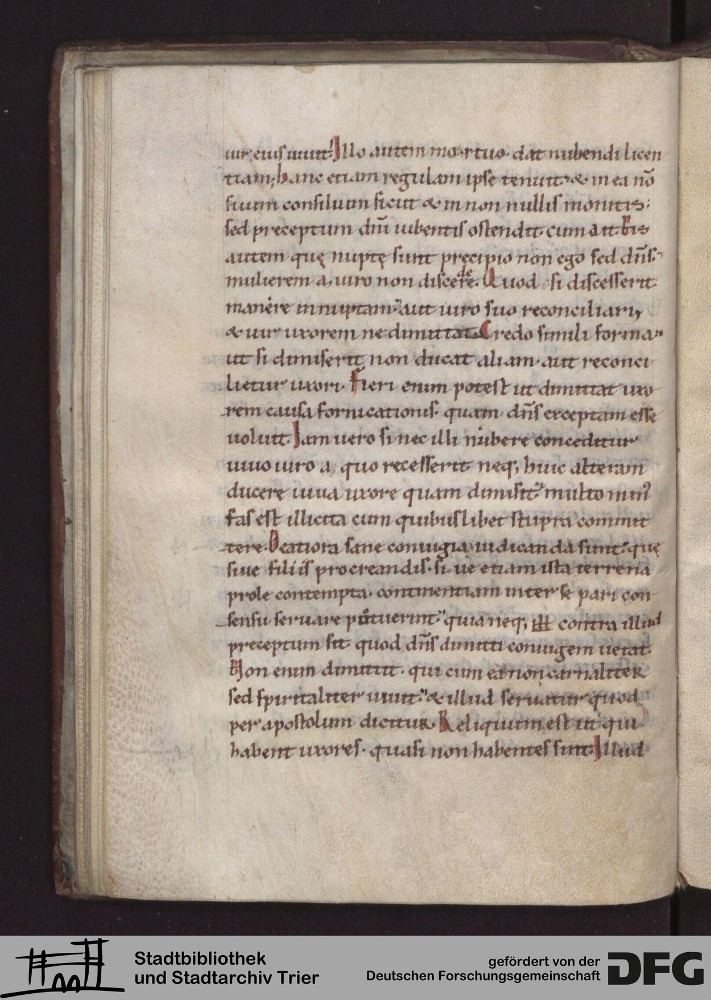 uir eius uiuit. Illo autem mortuo. dat nubendi licen
tiam; hanc etiam regulam ipse tenuit. & in ea nō
suum consilium sicut & in non nullis monitis:
sed preceptum dn̄i iubentis ostendit. cum ait. his
autem quę nuptę sunt pręcipio non ego sed dn̄s.
mulierem a uiro non discere. Quod si discesserit
manere innuptam. aut uiro suo reconciliari,
& uir uxorem ne dimittat. Credo simili forma.
ut si dimiserit non ducat aliam. aut reconci
lietur uxori. Fieri enim potest ut dimittat uxo
rem causa fornicationis. quam dn̄s exceptam esse
uoluit. Iam uero si nec illi nubere conceditur
uiuo uiro a quo recesserit neq; huic alteram
ducere uiua uxore quam dimisit. multo min9
fas est illicita cum quibuslibet stupra commit
tere. Beatiora sane coniugia iudicanda sunt. quę
siue filiis procreandis. siue etiam ista terrena
prole contempta. continentiam inter se pari con
sensu seruare potuerint. quia neq; contra illud
preceptum fit quod dn̄s dimitti coniugem uetat.
Non enim dimittit. qui cum ea non carnaliter
sed spiritaliter uiuit. & illud seruatur quod
per apostolum dicitur. Reliquum est ut qui
habent uxores. quasi non habentes sint. Illud
Stadtbibliothek
und Stadtarchiv Trier
gefördert von der
Deutschen Forschungsgemeinschaft
DFG